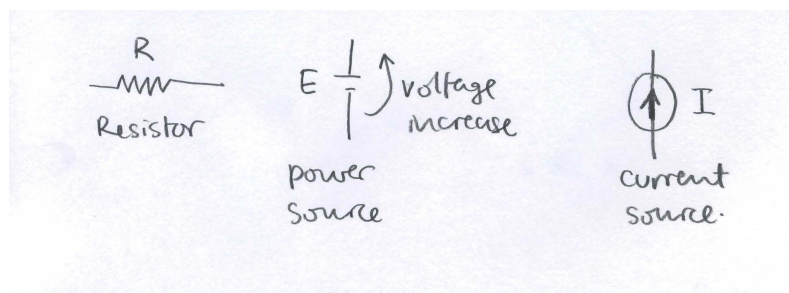 R
Resistor
E
voltage
increase
power
source
I
current
source.